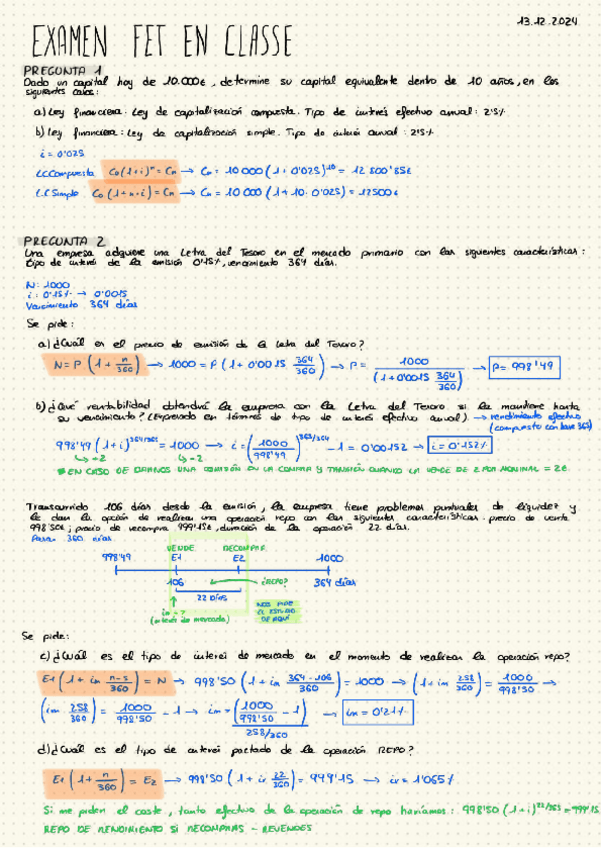 13.12.2024
EXAMEN FET EN CLASSE
PREGUNTA 1
Dado un capital hoy de 10.000€, determine su capital equivalente dentro de 10 años, en los
siguientes casos:
a) Ley financiera: Ley de capitalización compuesta. Tipo de interés efectivo anual: 2'5%
b) Ley financiera: Ley de capitalización simple. Tipo de interés anual: 2'5%
i = 0'025
LCCompuesta C₀(1+i)ⁿ = Cₙ → Cₙ = 10 000 (1+0'025)¹⁰ = 12 800'85€
LC Simple C₀(1+n·i) = Cₙ → Cₙ = 10 000 (1+10·0'025) = 12500€
PREGUNTA 2
Una empresa adquiere una Letra del Tesoro en el mercado primario con las siguientes características:
tipo de interés de la emisión 0'15%, vencimiento 364 días.
N: 1000
i: 0'15% → 0'0015
Vencimiento 364 días
Se pide:
a) ¿Cuál es el precio de emisión de la Letra del Tesoro?
N = P (1 + n/360) → 1000 = P (1+0'0015 364/360) → P = 1000/(1+0'0015 364/360) → P = 998'49
b) ¿Qué rentabilidad obtendrá la empresa con la Letra del Tesoro si la mantiene hasta
su vencimiento? (Expresado en términos de tipo de interés efectivo anual) → rendimiento efectivo
(compuesto con base 365)
998'49 (1+i)^364/365 = 1000 → i = (1000/998'49)^365/364 - 1 = 0'00152 → i = 0'152%
+2 -2
EN CASO DE DARNOS UNA COMISIÓN EN LA COMPRA Y TAMBIÉN CUANDO LA VENDE DE 2 POR NOMINAL = 2€
Transcurrido 106 días desde la emisión, la empresa tiene problemas puntuales de liquidez y
le dan la opción de realizar una operación repo con las siguientes características: precio de venta
998'50€; precio de recompra 999'15€ duración de la operación 22 días.
360 días
VENDE RECOMPRA
998'49 E1 E2 1000
106 ¿REPO? 364 días
22 DÍAS
im = ?
(interés de mercado)
NOS PIDE
EL ESTUDIO
DE AQUÍ
Se pide:
c) ¿Cuál es el tipo de interés de mercado en el momento de realizar la operación repo?
E1 (1 + im n-s/360) = N → 998'50 (1 + im 364-106/360) = 1000 → (1+im 258/360) = 1000/998'50 →
(im 258/360) = 1000/998'50 - 1 → im = (1000/998'50 - 1)/258/360 → im = 0'21%
d) ¿Cuál es el tipo de interés pactado de la operación REPO?
E1 (1 + n/360) = E2 → 998'50 (1 + ir 22/360) = 999'15 → ir = 1'065%
Si me piden el coste, tanto efectivo de la operación de repo haríamos: 998'50 (1+i)^22/365 = 999'15
REPO DE RENDIMIENTO SI RECOMPRAS - REVENDES